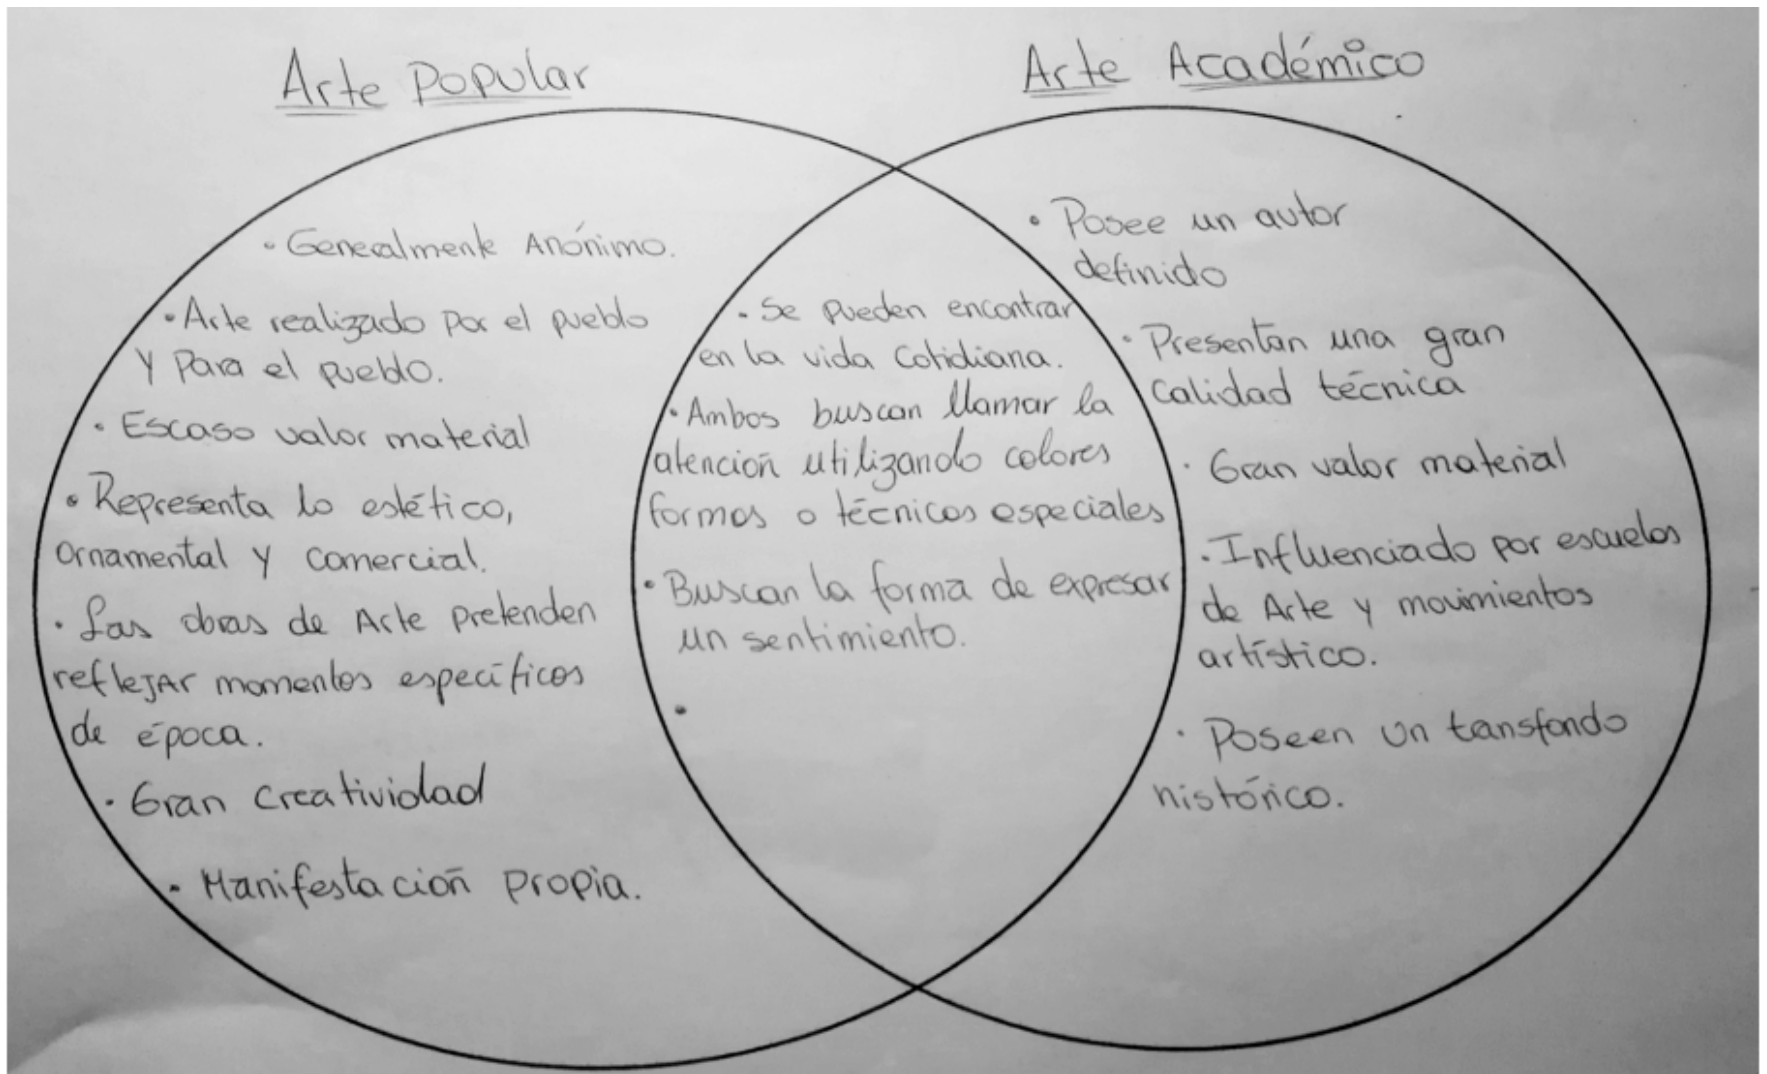 Arte Popular
Arte Académico
• Generalmente Anónimo.
• Arte realizado por el pueblo
y para el pueblo.
• Escaso valor material
• Representa lo estético,
Ornamental y comercial.
• Las obras de Arte pretenden
reflejar momentos específicos
de época.
• Gran Creatividad
• Manifestación propia.
• Se pueden encontrar
en la vida Cotidiana.
• Ambos buscan llamar la
atención utilizando colores
formas o técnicas especiales
• Buscan la forma de expresar
un sentimiento.
•
• Posee un autor
definido
• Presentan una gran
Calidad técnica
• Gran valor material
• Influenciado por escuelas
de Arte y movimientos
artístico.
• Poseen un tansfondo
histórico.